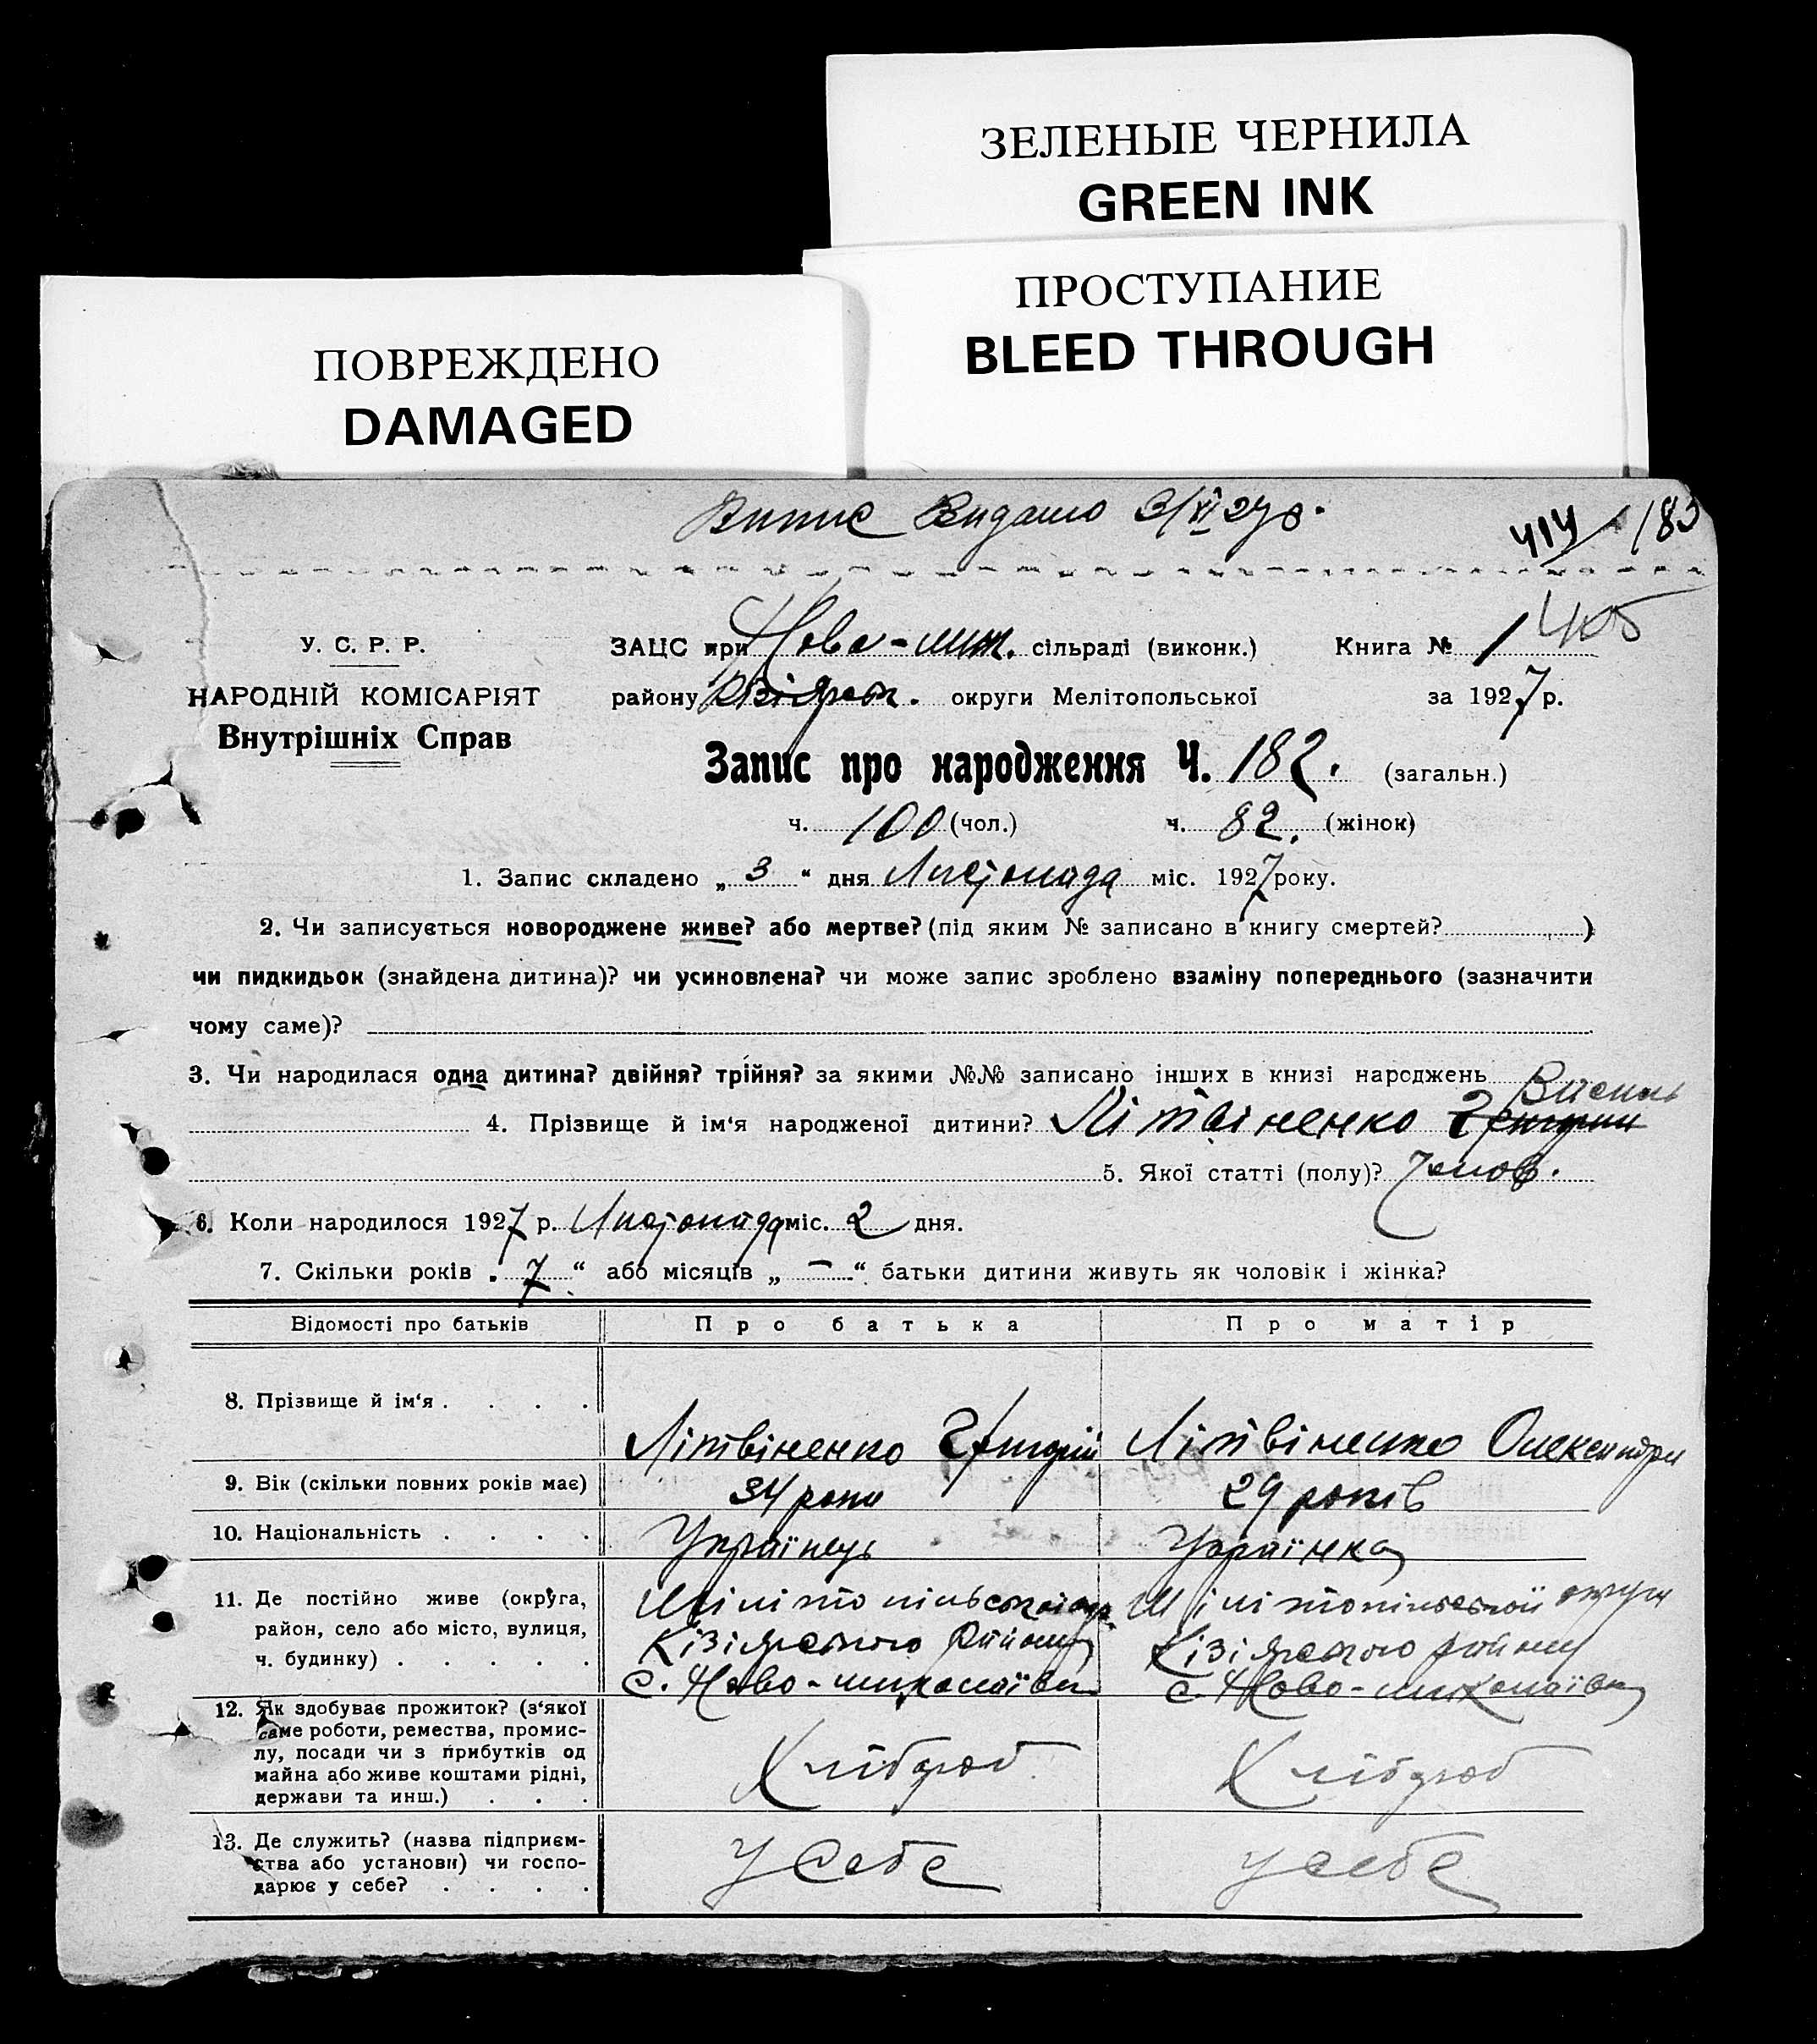 ЗЕЛЕНЫЕ ЧЕРНИЛА
GREEN INK
ПРОСТУПАНИЕ
BLEED THROUGH
ПОВРЕЖДЕНО
DAMAGED
Витяг Видано 3/XI 27р.
414 / 183
405
У. С. Р. Р.
НАРОДНІЙ КОМІСАРІЯТ
Внутрішніх Справ
ЗАЦС при Ново-мик. сільраді (виконк.) Книга № 1
району Кізіярськ. округи Мелітопольської за 1927 р.
Запис про народження Ч. 182. (загальн.)
ч. 100 (чол.) ч. 82. (жінок)
1. Запис складено „ 3 “ дня Листопада міс. 1927 року.
2. Чи записується новороджене живе? або мертве? (під яким № записано в книгу смертей? )
чи пидкидьок (знайдена дитина)? чи усиновлена? чи може запис зроблено взаміну попереднього (зазначити
чому саме)?
3. Чи народилася одна дитина? двійня? трійня? за якими №№ записано інших в книзі народжень
Василь
4. Прізвище й ім‘я народженої дитини? Літвіненко
5. Якої статті (полу)? Чолов.
6. Коли народилося 1927 р. Листопада міс. 2 дня.
7. Скільки років „ 7 “ або місяців „ — “ батьки дитини живуть як чоловік і жінка?
Відомості про батьків Про батька Про матір
8. Прізвище й ім‘я . . . . Літвіненко Григорій Літвіненко Олександра
9. Вік (скільки повних років має) 34 роки 29 років
10. Національність . . . . Українець Українка
11. Де постійно живе (округа,
район, село або місто, вулиця,
ч. будинку) . . . . .
Мілітопільської окр.
Кізіярського Району
с. Ново-миколаївка
Мілітопільської округи
Кізіярського району
с. Ново-миколаївка
12. Як здобуває прожиток? (з‘якої
саме роботи, ремества, промис-
лу, посади чи з прибутків од
майна або живе коштами рідні,
держави та инш.) . . .
Хлібороб
Хлібороб
13. Де служить? (назва підприєм-
ства або установи) чи госпо-
дарює у себе? . . . .
У себе
у себе